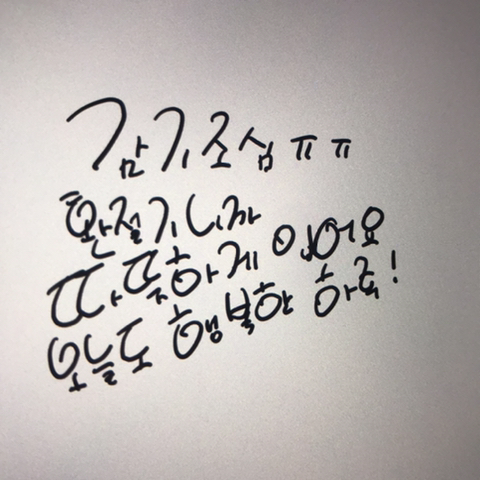 감기조심ㅠㅠ
환절기니까
따뜻하게 입어요
오늘도 행복한 하루!